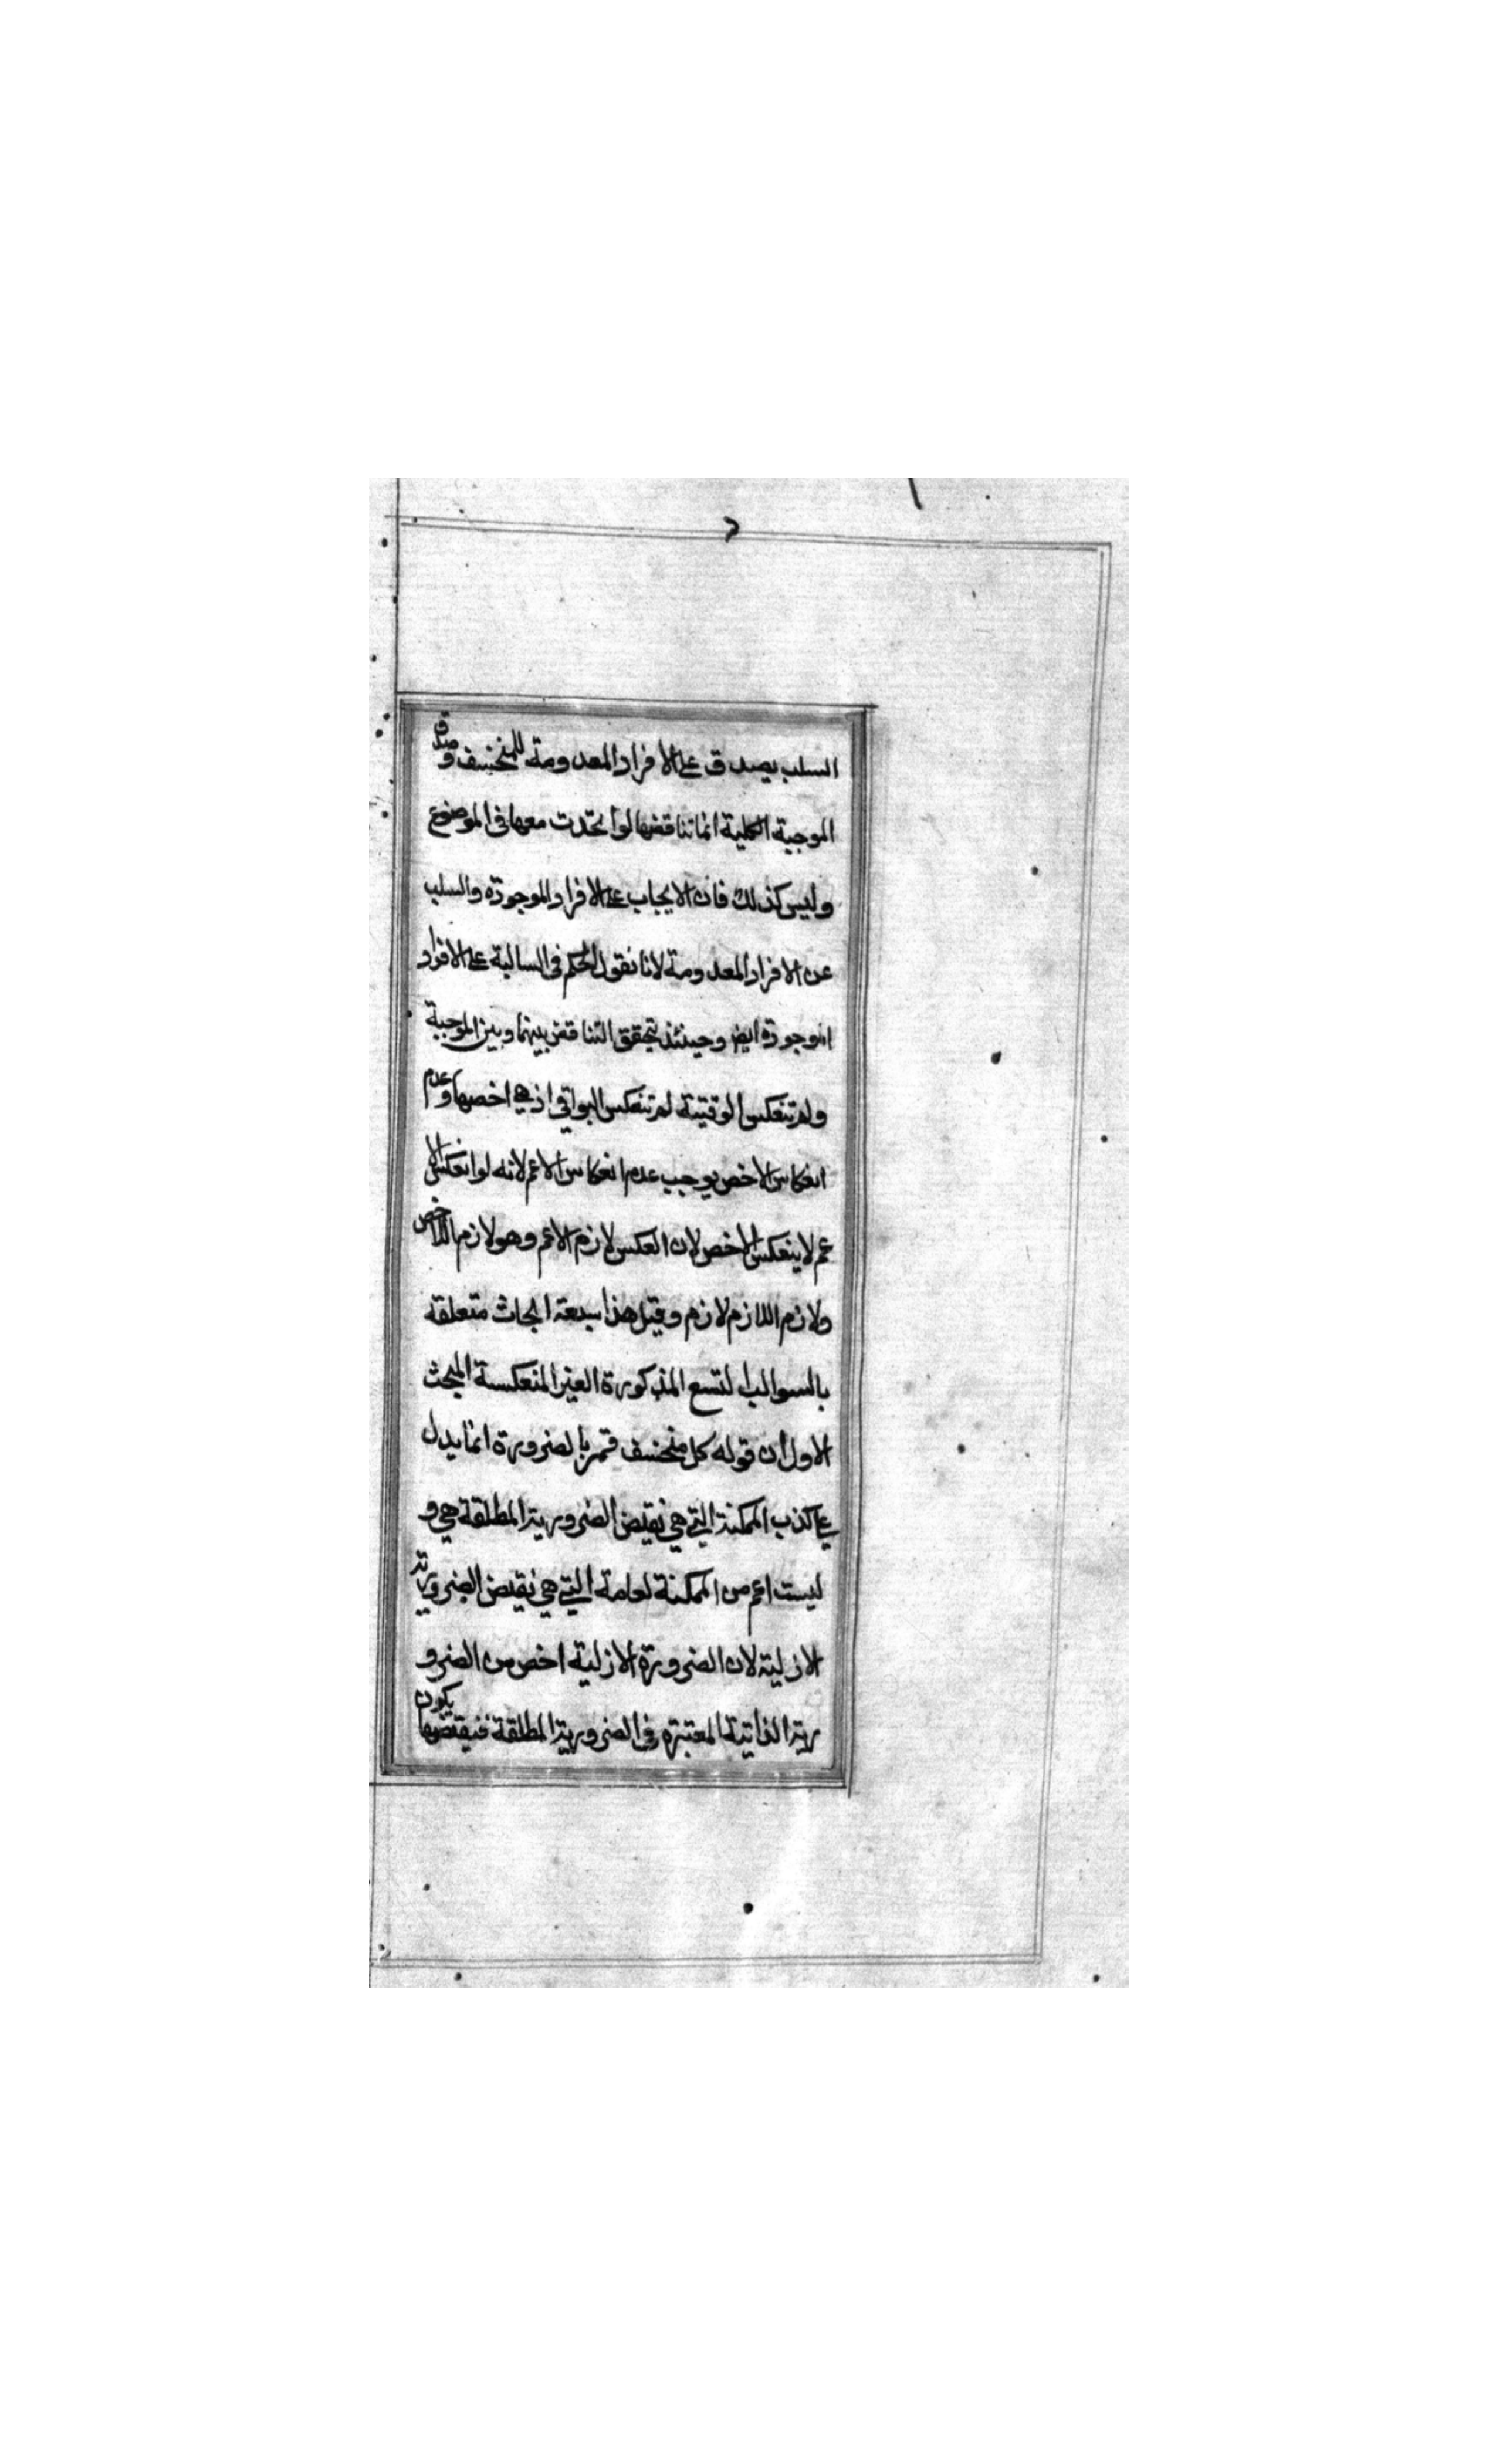 السلب يصدق على الافراد المعدومة للمنخسف وصدق
الموجبة الكلية انما تناقضها لو اتحدت معها فى الموضوع
وليس كذلك فان الايجاب على الافراد الموجودة والسلب
عن الافراد المعدومة لانا نقول الحكم فى السالبة على الافراد
الموجودة ايض وحينئذ تحقق التناقض بينها وبين الموجبة
ولم تنعكس الوقتية لم تنعكس البواقى اذ هى اخصها وعدم
انعكاس الاخص يوجب عدم انعكاس الاعم لانه لو انعكس الا
عم لاينعكس الاخص لان العكس لازم الاعم وهو لازم الاخص
ولازم اللازم لازم وقيل هذا سبعة ابحاث متعلقة
بالسوالب لتسع المذكورة الغير المنعكسة المبحث
الاول ان قوله كل منخسف قمر بالضرورة انما يدل
على كذب الممكنة التي هي نقيض الضرورية المطلقة هي و
ليست اعم من الممكنة لعامة التي هي نقيض الضرورية
الازلية لان الضرورة الازلية اخص من الضرو
رية الذاتية المعتبرة فى الضرورية المطلقة فنيقتضها يكون